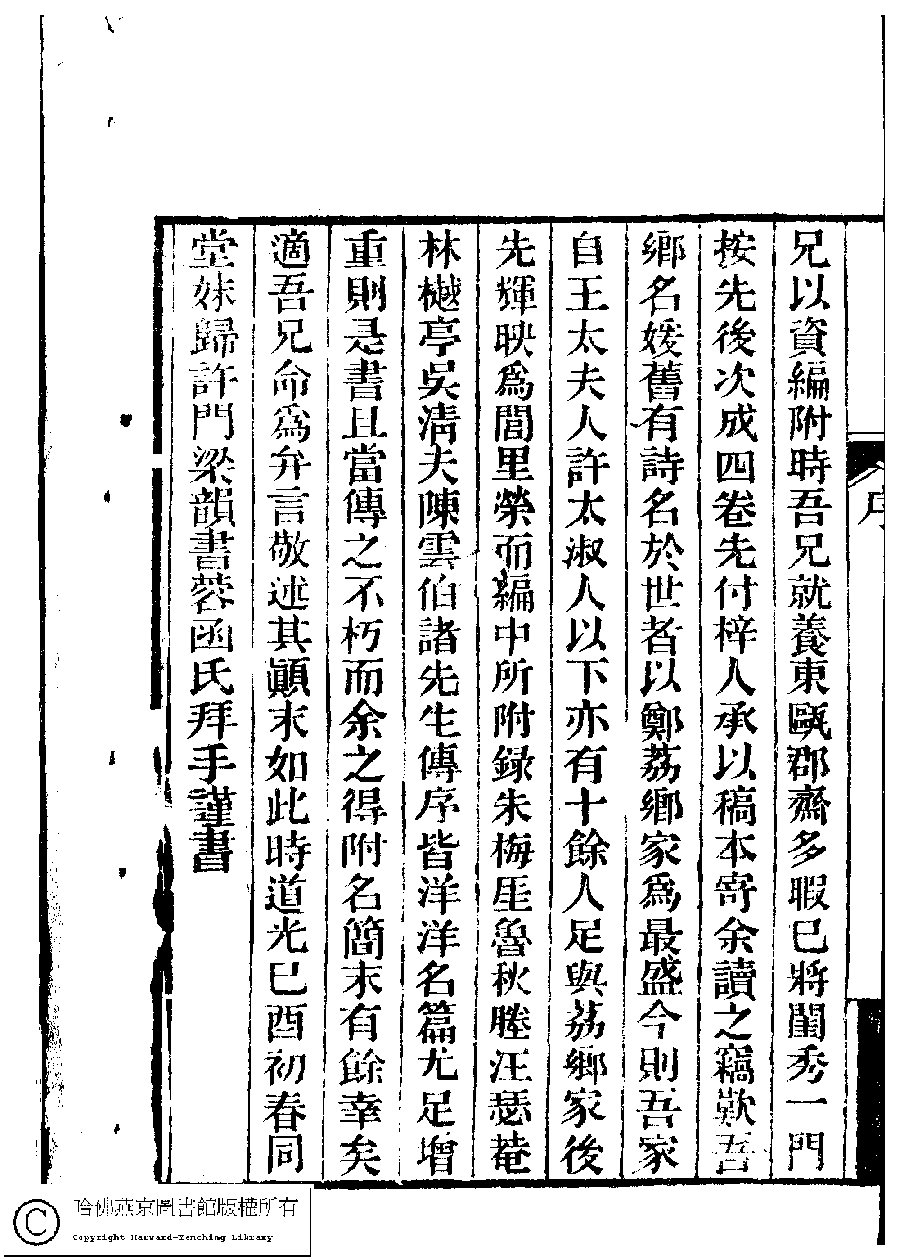 序
兄以資編附時吾兄就養東甌郡齋多暇已將閨秀一門
按先後次成四卷先付梓人承以稿本寄余讀之竊歎吾
鄉名媛舊有詩名於世者以鄭荔鄉家為最盛今則吾家
自王太夫人許太淑人以下亦有十餘人足與荔鄉家後
先輝映為閭里榮而編中所附錄朱梅厓魯秋塍汪瑟菴
林樾亭吳清夫陳雲伯諸先生傳序皆洋洋名篇尤足增
重則是書且當傳之不朽而余之得附名簡末有餘幸矣
適吾兄命為弁言敬述其顛末如此時道光己酉初春同
堂妹歸許門梁韻書蓉函氏拜手謹書
哈佛燕京圖書館版權所有
Copyright Harvard-Yenching Library